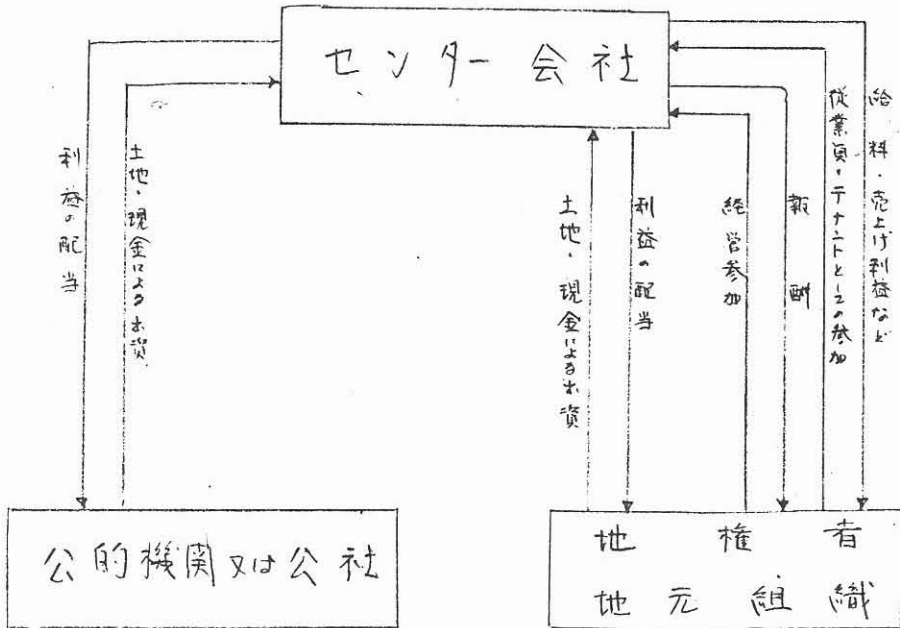 センター会社
利益の配当
土地・現金による出資
土地・現金による出資
利益の配当
経営参加
報酬
従業員・テナントとしての参加
給料・売上げ利益など
公的機関又は公社
地権者
地元組織